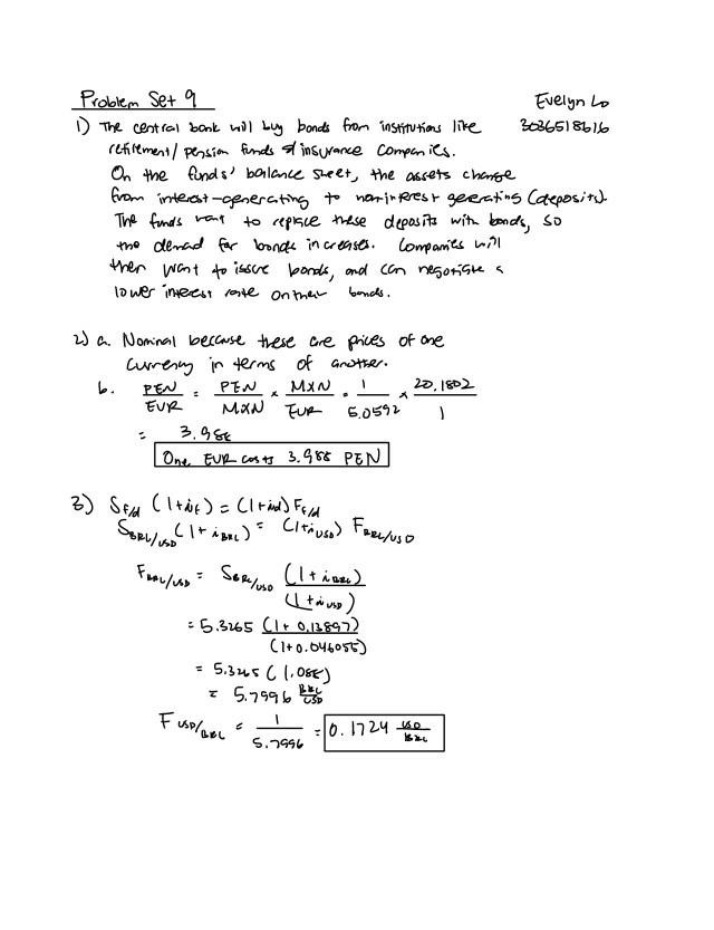 Problem Set 9
Evelyn Lo
3036518616
1) The central bank will buy bonds from institutions like
retirement/pension funds & insurance companies.
On the funds' balance sheet, the assets change
from interest-generating to non-interest generating (deposits).
The funds want to replace these deposits with bonds, so
the demand for bonds increases. Companies will
then want to issue bonds, and can negotiate a
lower interest rate on their bonds.
2) a. Nominal because these are prices of one
currency in terms of another.
b. PEN/EUR = PEN/MXN × MXN/EUR = 1/5.0592 × 20.1802/1
= 3.988
One EUR costs 3.988 PEN
3) S_f/d (1+i_f) = (1+i_d) F_f/d
S_BRL/USD (1+i_BRL) = (1+i_USD) F_BRL/USD
F_BRL/USD = S_BRL/USD (1+i_BRL)/(1+i_USD)
= 5.3265 (1+0.13897)/(1+0.046055)
= 5.3265 (1.088)
= 5.7996 BRL/USD
F_USD/BRL = 1/5.7996 = 0.1724 USD/BRL